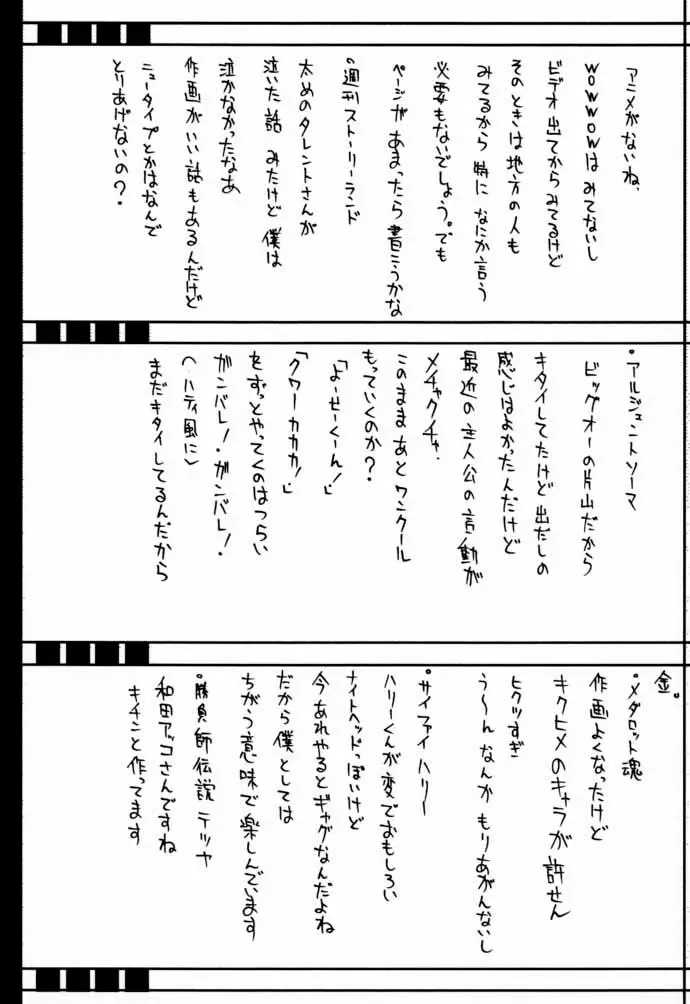 アニメがないね、
WOWWOWはみてないし
ビデオ出てからみてるけど
そのときは地方の人も
みてるから特になにか言う
必要もないでしょう。でも
ページがあまったら書こうかな
・週刊ストーリーランド
太めのタレントさんが
泣いた話みたけど僕は
泣かなかったなあ
作画がいい話もあるんだけど
ニュータイプとかはなんで
とりあげないの?
・アルジェントソーマ
ビッグオーの片山だから
キタイしてたけど出だしの
感じはよかったんだけど
最近の主人公の言動が
メチャクチャ.
このままあとワンクール
もっていくのか?
「よーせーくーん!」
「クワーカカカ!」
をずっとやってくのはつらい
ガンバレ!・ガンバレ!・
(ハティ風に)
まだキタイしてるんだから
金。
・メダロット魂
作画よくなったけど
キクヒメのキャラが許せん
ヒクツすぎ
う〜んなんかもりあがんないし
・サイファイハリー
ハリーくんが変でおもしろい
ナイトヘッドっぽいけど
今あれやるとギャグなんだよね
だから僕としては
ちがう意味で楽しんでいます
・勝負師伝説テツヤ
和田アッコさんですね
キチンと作ってます